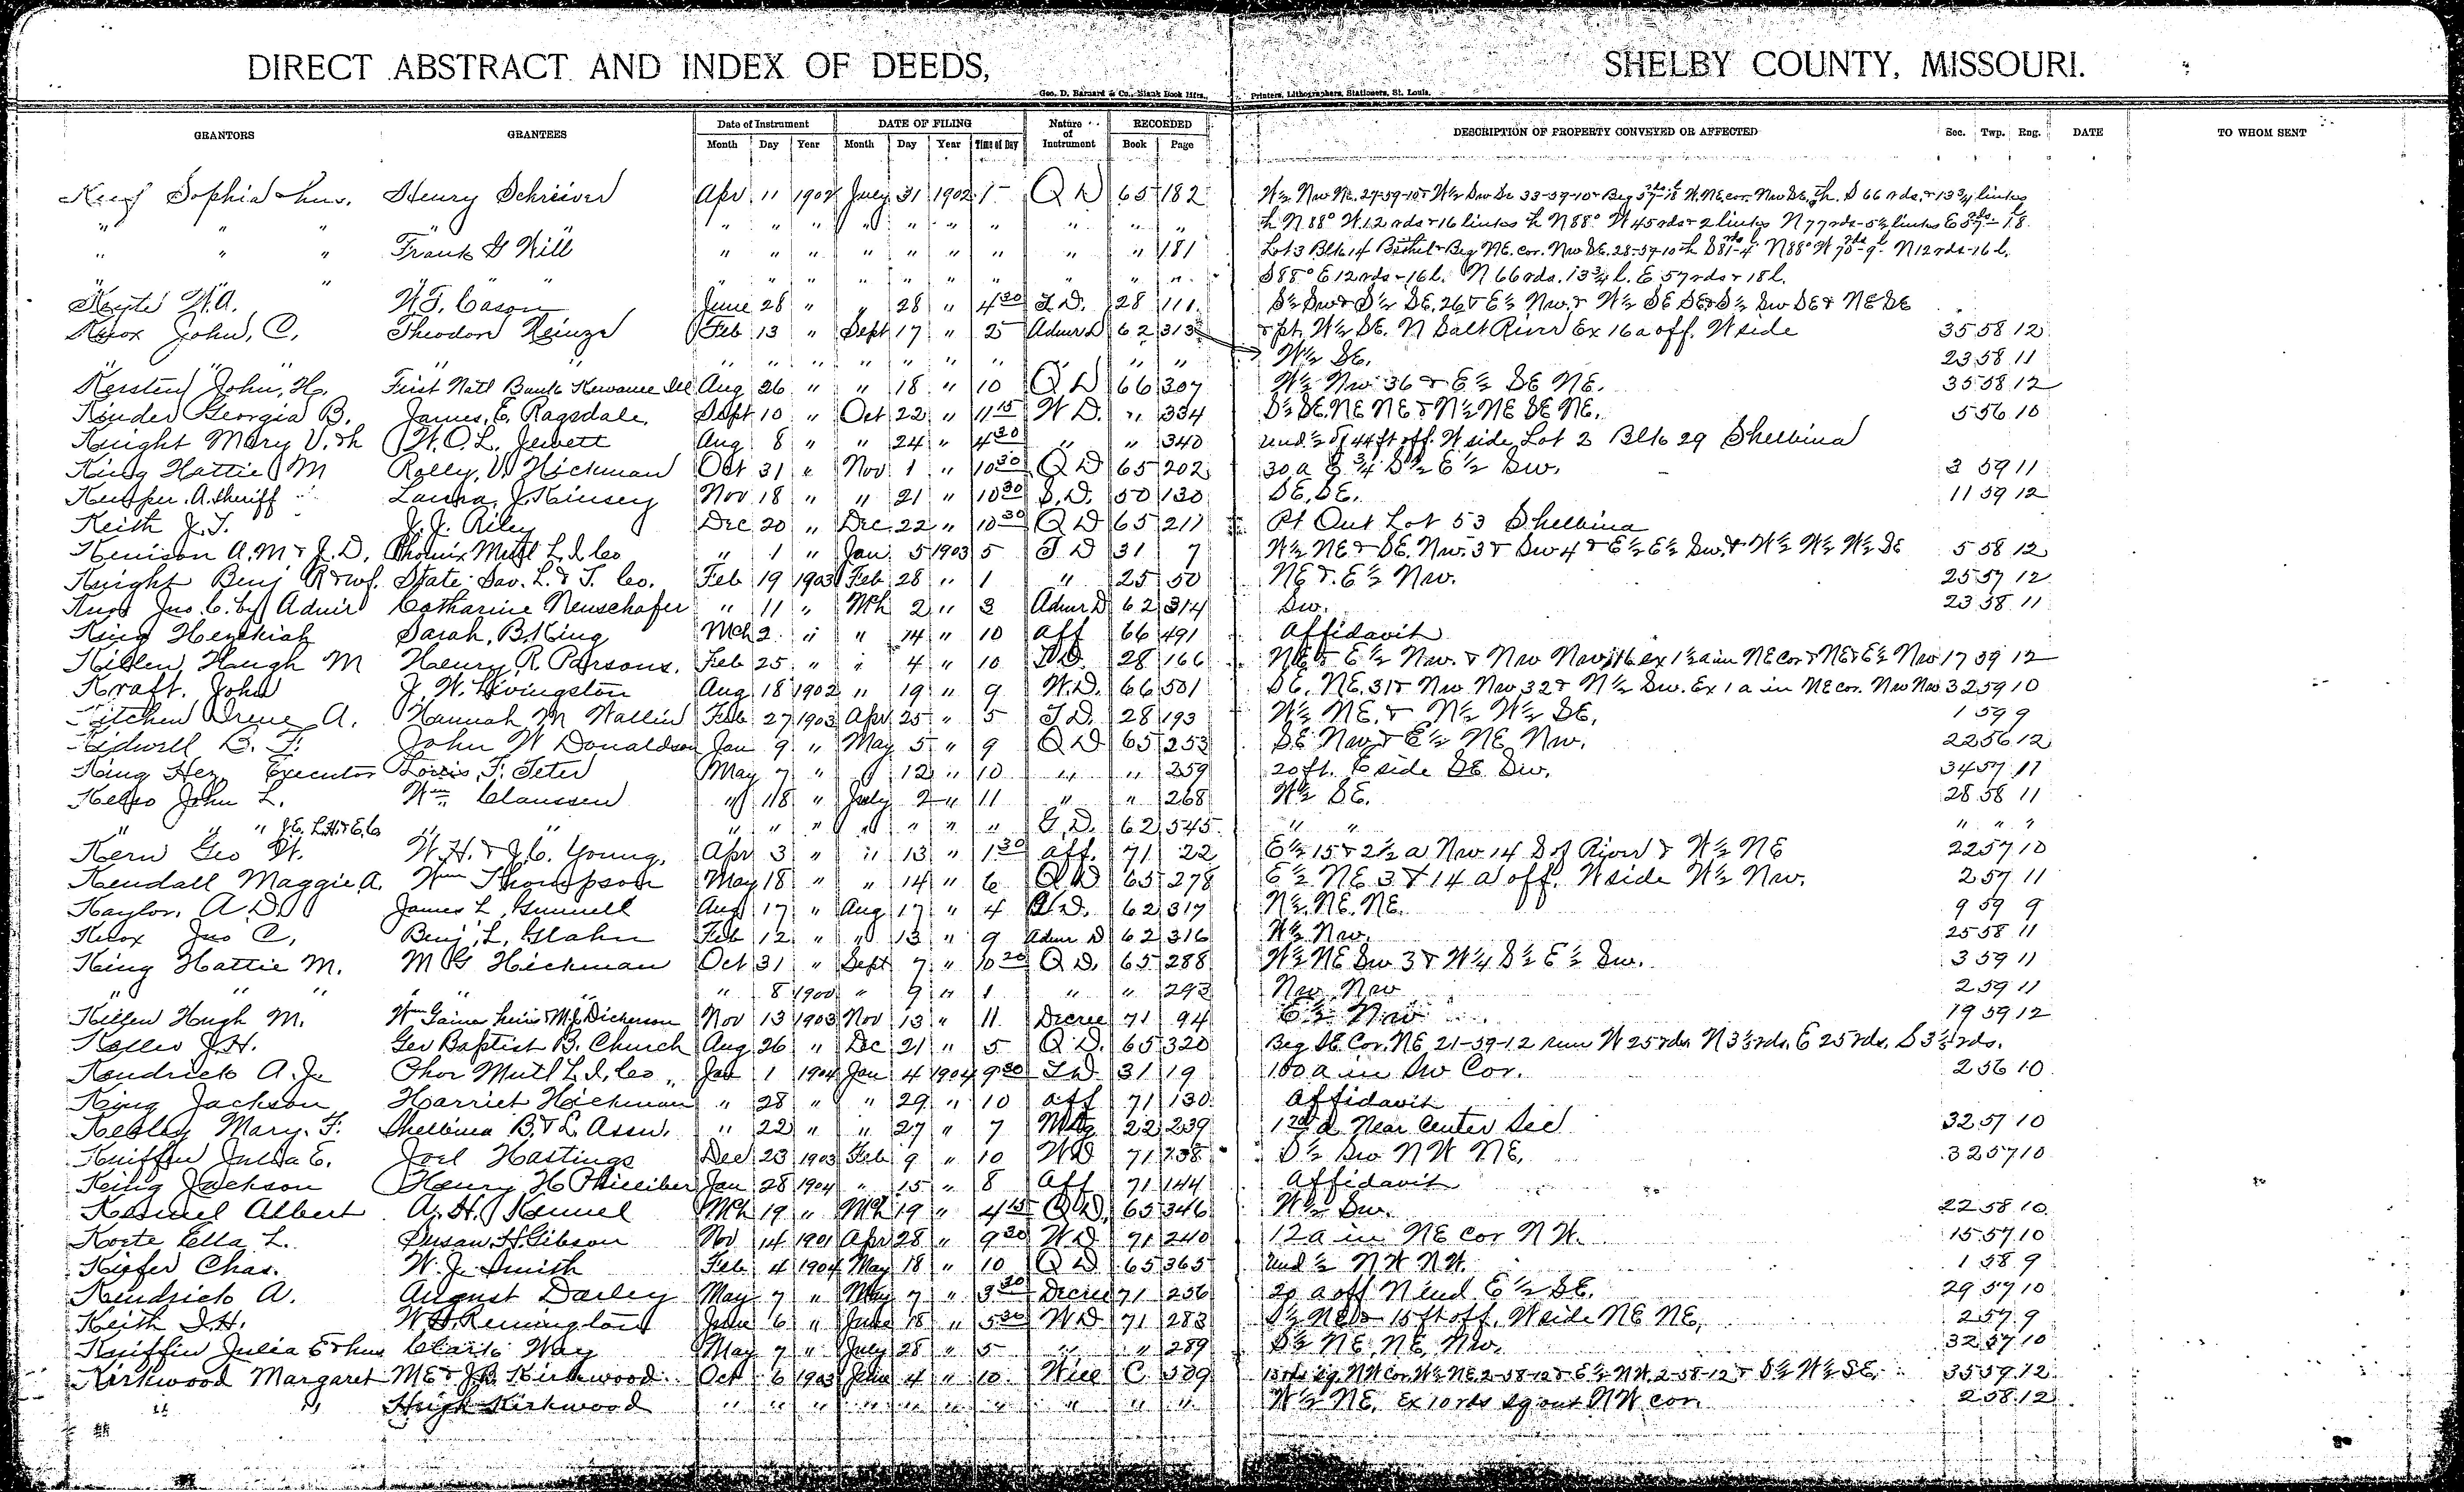 DIRECT ABSTRACT AND INDEX OF DEEDS, SHELBY COUNTY, MISSOURI.
Geo. D. Barnard & Co., Blank Book Mfrs., Printers, Lithographers, Stationers, St. Louis.
GRANTORS GRANTEES Date of Instrument DATE OF FILING Nature of Instrument RECORDED DESCRIPTION OF PROPERTY CONVEYED OR AFFECTED Sec. Twp. Rng. DATE TO WHOM SENT
Month Day Year Month Day Year Time of Day Book Page
Sophia & hus. Henry Schriever Apr 11 1902 July 31 1902 1 Q D 65 182 W½ Nw Ne. 27-59-10 & W½ Sw Se 33-59-10 & Beg
" " " " " " " " " " " " " " "
" " " Frank G Will " " " " " " " " " 181 Lot 3 Blk 14 Bethel & Beg NE. cor. Nw SE. 28-59-10
" " " " " " " " " " " " " S 88° E 12 rds - 16 l. N 66 rds. 13¾ l. E 57 rds & 18 l.
Keyte W.A. W.T. Cason June 28 " " 28 " 4 30 T.D. 28 111 S½ Sw & S½ SE. 26 & E½ Nw. & W½ SE SE & S½ Sw SE & NE SE
Knox John, C. Theodore Heinze Feb 13 " Sept 17 " 2 5 Admr D 62 313 & pt. W½ SE. N Salt River Ex 16 a off. W side 35 58 12
" " " " " " " " " " " " " W½ SE. 23 58 11
Kersten John, H. First Natl Bank Kewanee Ill Aug 26 " " 18 " 10 Q D 66 307 W½ Nw 36 & E½ SE NE. 35 58 12
Kinder Georgia B. James, E. Ragsdale Sept 10 " Oct 22 " 11 15 W D. " 334 S½ SE. NE NE & N½ NE SE NE. 5 56 10
Knight Mary V. & h W.O.L. Jewett Aug 8 " " 24 " 4 30 " " 340 und ½ of 44 ft off. W side Lot 2 Blk 29 Shelbina
King Hattie M Rolley, W Hickman Oct 31 " Nov 1 " 10 30 Q D 65 202 30 a E ¾ S½ E½ Sw. 3 59 11
Kemper. A. Sheriff Laura, J. Kinsey Nov 18 " " 21 " 10 30 S.D. 50 130 SE, SE. 11 59 12
Keith J.T. J.J. Riley Dec 20 " Dec 22 " 10 30 Q D 65 211 Pt Out Lot 53 Shelbina
Kenison A.M. & J.D. Phoenix Mutl L.I. Co " 1 " Jan. 5 1903 5 T D 31 7 W½ NE & SE. Nw. 3 & Sw 4 & E½ E½ Sw. & W½ W½ W½ SE 5 58 12
Knight Benj R & wf. State Sav. L. & T. Co. Feb 19 1903 Feb 28 " 1 " 25 50 NE & E½ Nw. 25 57 12
Knox Jno C. by Admr Catharine Neuschafer " 11 " Mch 2 " 3 Admr D 62 314 Sw. 23 58 11
King Hezekiah Sarah, B. King Mch 2 " " 14 " 10 aff 66 491 Affidavit
Killen, Hugh M Henry R. Parsons. Feb 25 " " 4 " 10 T.D. 28 166 NE & E½ Nw. & Nw Nw 16 ex 1½ a in NE cor & NE & E½ Nw 17 59 12
Kraft. John J. W. Livingston Aug 18 1902 " 19 " 9 W.D. 66 501 SE. NE. 31 & Nw Nw 32 & N½ Sw. Ex 1 a in NE cor. Nw Nw 32 59 10
Kitchen Irene A. Hannah M Wallin Feb 27 1903 Apr 25 " 5 T D. 28 193 W½ NE. & N½ W½ SE. 1 59 9
Kidwell B. F. John W Donaldson Jan 9 " May 5 " 9 Q D 65 253 SE Nw & E½ NE Nw. 22 56 12
King Hez. Executor Louis, F. Teter May 7 " " 12 " 10 " " 259 20 ft. E side SE Sw. 34 57 11
Kelso John L. Wm Claussen " 18 " July 2 " 11 " " 268 W½ SE. 28 58 11
" " " J.E. L.H. & E.C. " " " " " " " " " G.D. 62 545 " " " " "
Kern Geo W. W.H. & J.C. Young, Apr 3 " " 13 " 1 30 aff. 71 22 E½ 15 & 2½ a Nw 14 S of River & W½ NE 22 57 10
Kendall Maggie A. Wm Thompson May 18 " " 14 " 6 Q D 65 278 E½ NE 3 & 14 a off. W side W½ Nw. 2 57 11
Kaylor, A D. James L. Gunnell Aug 17 " Aug 17 " 4 D. 62 317 N½. NE. NE. 9 59 9
Knox Jno C. Benj. L. Glahn Feb 12 " " 13 " 9 Admr D 62 316 W½ Nw. 25 58 11
King Hattie M. M G Hickman Oct 31 " Sept 7 " 10 20 Q D. 65 288 W½ NE Sw 3 & W¼ S½ E½ Sw. 3 59 11
" " " " " 8 1900 " 9 " 1 " " 293 Nw. Nw 2 59 11
Killen Hugh M. Wm Gaines heirs & M.J. Dickerson Nov 13 1903 Nov 13 " 11 Decree 71 94 E½ Nw 19 59 12
Keller J.H. Ger Baptist B. Church Aug 26 " Dec 21 " 5 Q D. 65 320 Beg SE Cor. NE 21-59-12 run W 25 rds. N 3½ rds. E 25 rds. S 3½ rds.
Kendrick A. J. Phoe Mutl L.I. Co " Jan 1 1904 Jan 4 1904 9 30 T D 31 19 100 a in Sw Cor. 2 56 10
King Jackson Harriet Hickman " 28 " " 29 " 10 aff 71 130 Affidavit
Kelley Mary. F. Shelbina B. & L Assn. " 22 " " 27 " 7 Mtg 22 239 a Near Center Sec 32 57 10
Kniffin Julia E. Joel Hastings Dec 23 1903 Feb 9 " 10 WD 71 238 S½ Sw NW NE. 32 57 10
King Jackson Henry H Philliber Jan 28 1904 " 15 " 8 aff 71 144 Affidavit
Kennel Albert A. H. Kennel Mch 19 " Mch 19 " 4 15 Q D. 65 346 W½ Sw. 22 58 10
Korte Ella L. Susan H. Gibson Nov 14 1901 Apr 28 " 9 30 W D 71 240 12 a in NE cor N W. 15 57 10
Kiefer Chas. W. J. Smith Feb 4 1904 May 18 " 10 Q D 65 365 und ½ NW NW. 1 58 9
Kendrick A. August Darley May 7 " May 7 " 3 30 Decree 71 256 20 a off N end E½ SE. 29 57 10
Keith J.H. W D. Remington June 6 " June 18 " 5 30 W D 71 283 S½ NE & 15 ft off. W side NE NE, 2 57 9
Kniffin Julia E & hus Clark Way May 7 " July 28 " 5 " " 289 S½ NE, NE, Nw. 32 57 10
Kirkwood Margaret ME & J.B. Kirkwood Oct 6 1903 June 4 " 10 Will C 589 NW Cor. W½ NE. 2-58-12 & E½ NW. 2-58-12 & S½ W½ SE. 35 59 12
" " Hugh Kirkwood " " " " " " " " " " W½ NE. Ex 10 rds sq out NW cor. 2 58 12